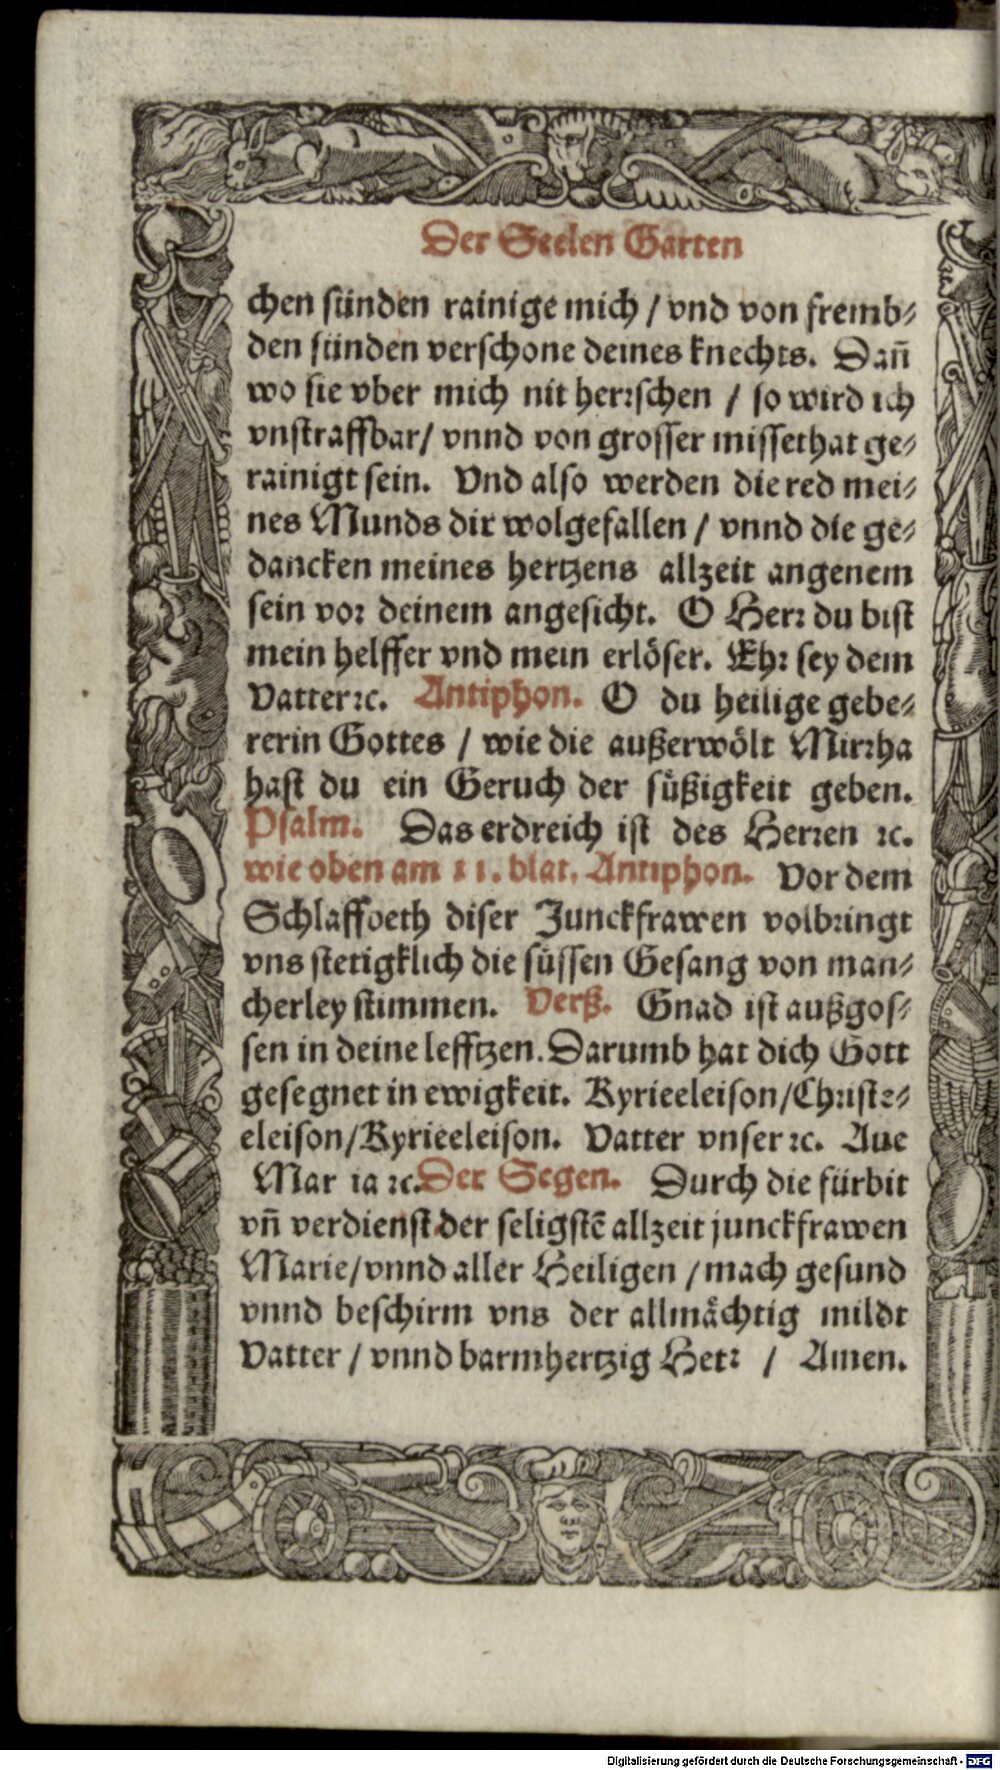 Der Seelen Garten
chen sünden rainige mich / vnd von fremb⸗
den sünden verschone deines knechts. Dañ
wo sie vber mich nit herꝛschen / so wird ich
vnstraffbar/ vnnd von grosser missethat ge⸗
rainigt sein. Vnd also werden die red mei⸗
nes Munds dir wolgefallen / vnnd die ge⸗
dancken meines hertzens allzeit angenem
sein voꝛ deinem angesicht. O Herꝛ du bist
mein helffer vnd mein erlöser. Ehꝛ sey dem
Vatter ꝛc. Antiphon. O du heilige gebe⸗
rerin Gottes / wie die außerwölt Mirꝛha
hast du ein Geruch der süßigkeit geben.
Psalm. Das erdreich ist des Herꝛen ꝛc.
wie oben am 11. blat. Antiphon. Vor dem
Schlaffbeth diser Junckfrawen volbꝛingt
vns stetigklich die süssen Gesang von man⸗
cherley stimmen. Verß. Gnad ist außgos⸗
sen in deine lefftzen. Darumb hat dich Gott
gesegnet in ewigkeit. Kyrieeleison/Chꝛiste⸗
eleison/Kyrieeleison. Vatter vnser ꝛc. Aue
Mar ia ꝛc. Der Segen. Durch die fürbit
vñ verdienst der seligstē allzeit junckfrawen
Marie/vnnd aller Heiligen / mach gesund
vnnd beschirm vns der allmächtig mildt
Vatter / vnnd barmhertzig Herꝛ / Amen.
Digitalisierung gefördert durch die Deutsche Forschungsgemeinschaft - DFG